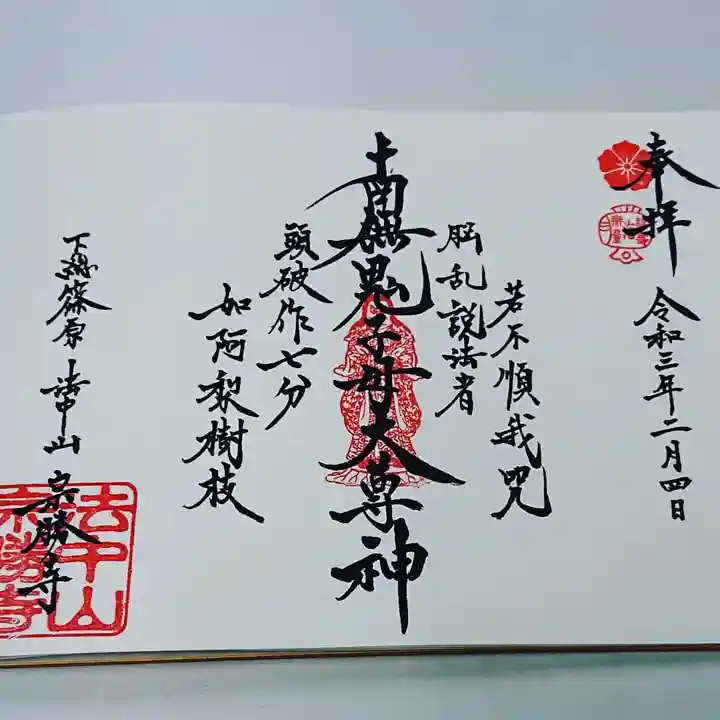 奉拝
令和三年二月四日
若不順我咒
悩乱説法者
南無鬼子母大尊神
頭破作七分
如阿梨樹枝
下総篠原 法中山 宗勝寺
法中山
宗勝寺